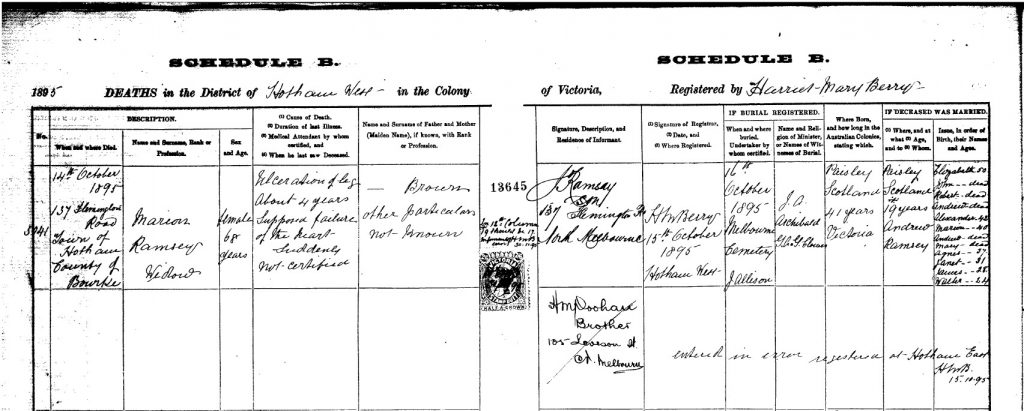 SCHEDULE B.
SCHEDULE B.
1895 DEATHS in the District of Hotham West in the Colony
of Victoria, Registered by Harriet Mary Berry
No.
DESCRIPTION.
When and where Died.
Name and Surname, Rank or Profession.
Sex and Age.
(1) Cause of Death.
(2) Duration of last Illness.
(3) Medical Attendant by whom certified, and
(4) When he last saw Deceased.
Name and Surname of Father and Mother (Maiden Name), if known, with Rank or Profession.
Signature, Description, and Residence of Informant.
(1) Signature of Registrar,
(2) Date, and
(3) Where Registered.
IF BURIAL REGISTERED.
When and where buried. Undertaker by whom certified.
Name and Religion of Minister, or Names of Witnesses of Burial.
Where Born, and how long in the Australian Colonies, stating which.
IF DECEASED WAS MARRIED.
(1) Where, and at what (2) Age, and to (3) Whom.
Issue, in order of Birth, their Names and Ages.
14th October
1895
137 Flemington
Road
Town of
Hotham
County of
Bourke
Marion
Ramsey
Widow
female
68
years
Ulceration of leg
About 4 years
Supposed failure
of the heart
Suddenly
Not certified
— Brown
other particulars
not known
13645
HALF A CROWN
J Ramsey
son
137
Flemington Rd
North Melbourne
H M Berry
15th October
1895
Hotham West
16th
October
1895
Melbourne
Cemetery
J Allison
J. A.
Archibald
Paisley
Scotland
41 years
Victoria
Paisley
Scotland
19 years
Andrew
Ramsey
Elizabeth 50
John -- dead
Robert - dead
Andrew dead
Alexander 42
Marion -- 40
Andrew dead
Mary - dead
Agnes - 37
Janet -- 31
James -- 28
Walter -- 24
Brother
105
St
Melbourne
entered in error registered at Hotham East
HMB.
15.10.95